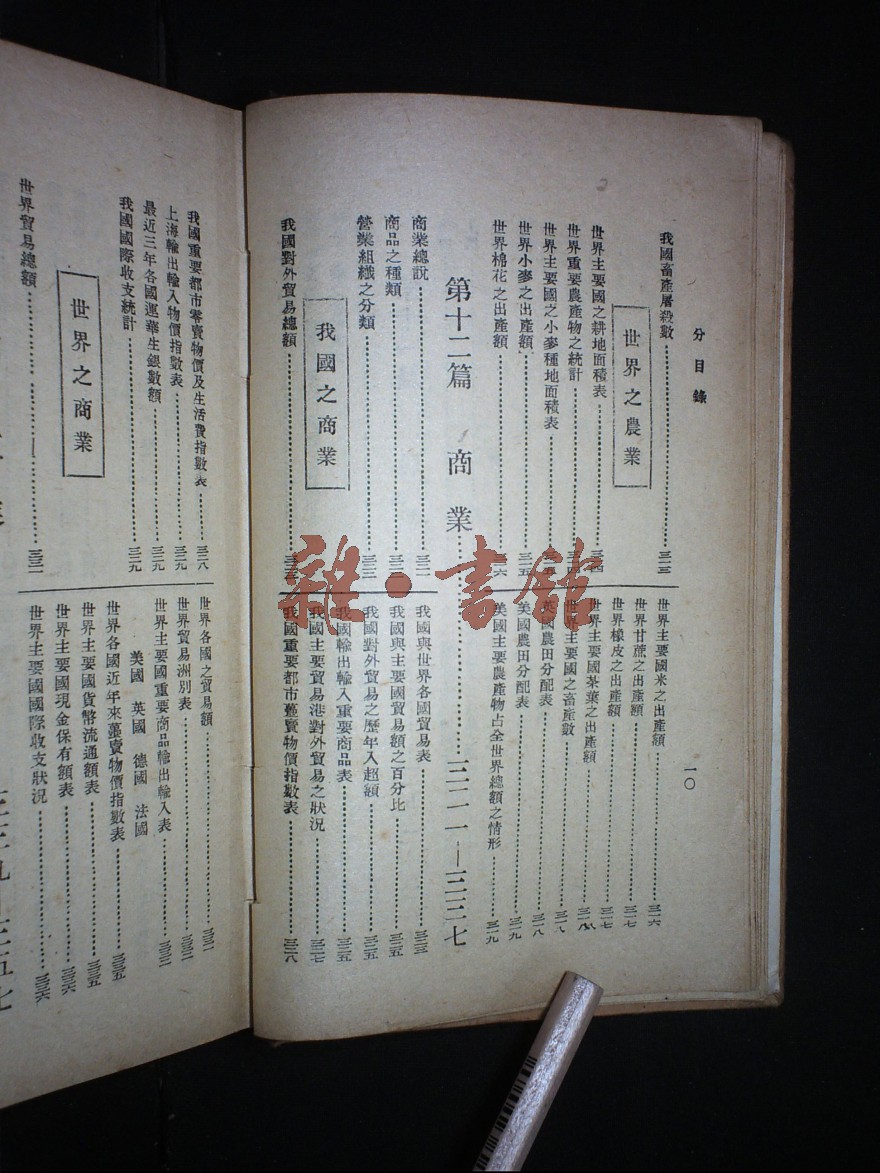 分目錄
一〇
我國畜產屠殺數……三一三
世界之農業
世界主要國之耕地面積表……三一四
世界重要農產物之統計
世界主要國之小麥種地面積表
世界小麥之出產額……三一五
世界棉花之出產額……三一六
世界主要國米之出產額……三一六
世界甘蔗之出產額……三一七
世界橡皮之出產額……三一七
世界主要國茶葉之出產額……三一八
世界主要國之畜產數……三一八
英國農田分配表……三一八
美國農田分配表……三一九
美國主要農產物占全世界總額之情形……三一九
第十二篇 商業……三二一—三三七
商業總說……三二一
商品之種類
營業組織之分類
我國之商業
我國對外貿易總額
我國與世界各國貿易表……三二三
我國與主要國貿易額之百分比……三二五
我國對外貿易之歷年入超額……三二五
我國輸出輸入重要商品表……三二五
我國主要貿易港對外貿易之狀況……三二七
我國重要都市躉賣物價指數表……三二八
我國重要都市零賣物價及生活費指數表……三二八
上海輸出輸入物價指數表……三二九
最近三年各國運華生銀數額……三二九
我國國際收支統計……三二九
世界之商業
世界貿易總額……三三一
世界各國之貿易額……三三一
世界貿易洲別表……三三二
世界主要國重要商品輸出輸入表……三三二
美國 英國 德國 法國
世界各國近年來躉賣物價指數表……三三五
世界主要國貨幣流通額表……三三五
世界主要國現金保有額表……三三六
世界主要國國際收支狀況……三三六
雜·書館